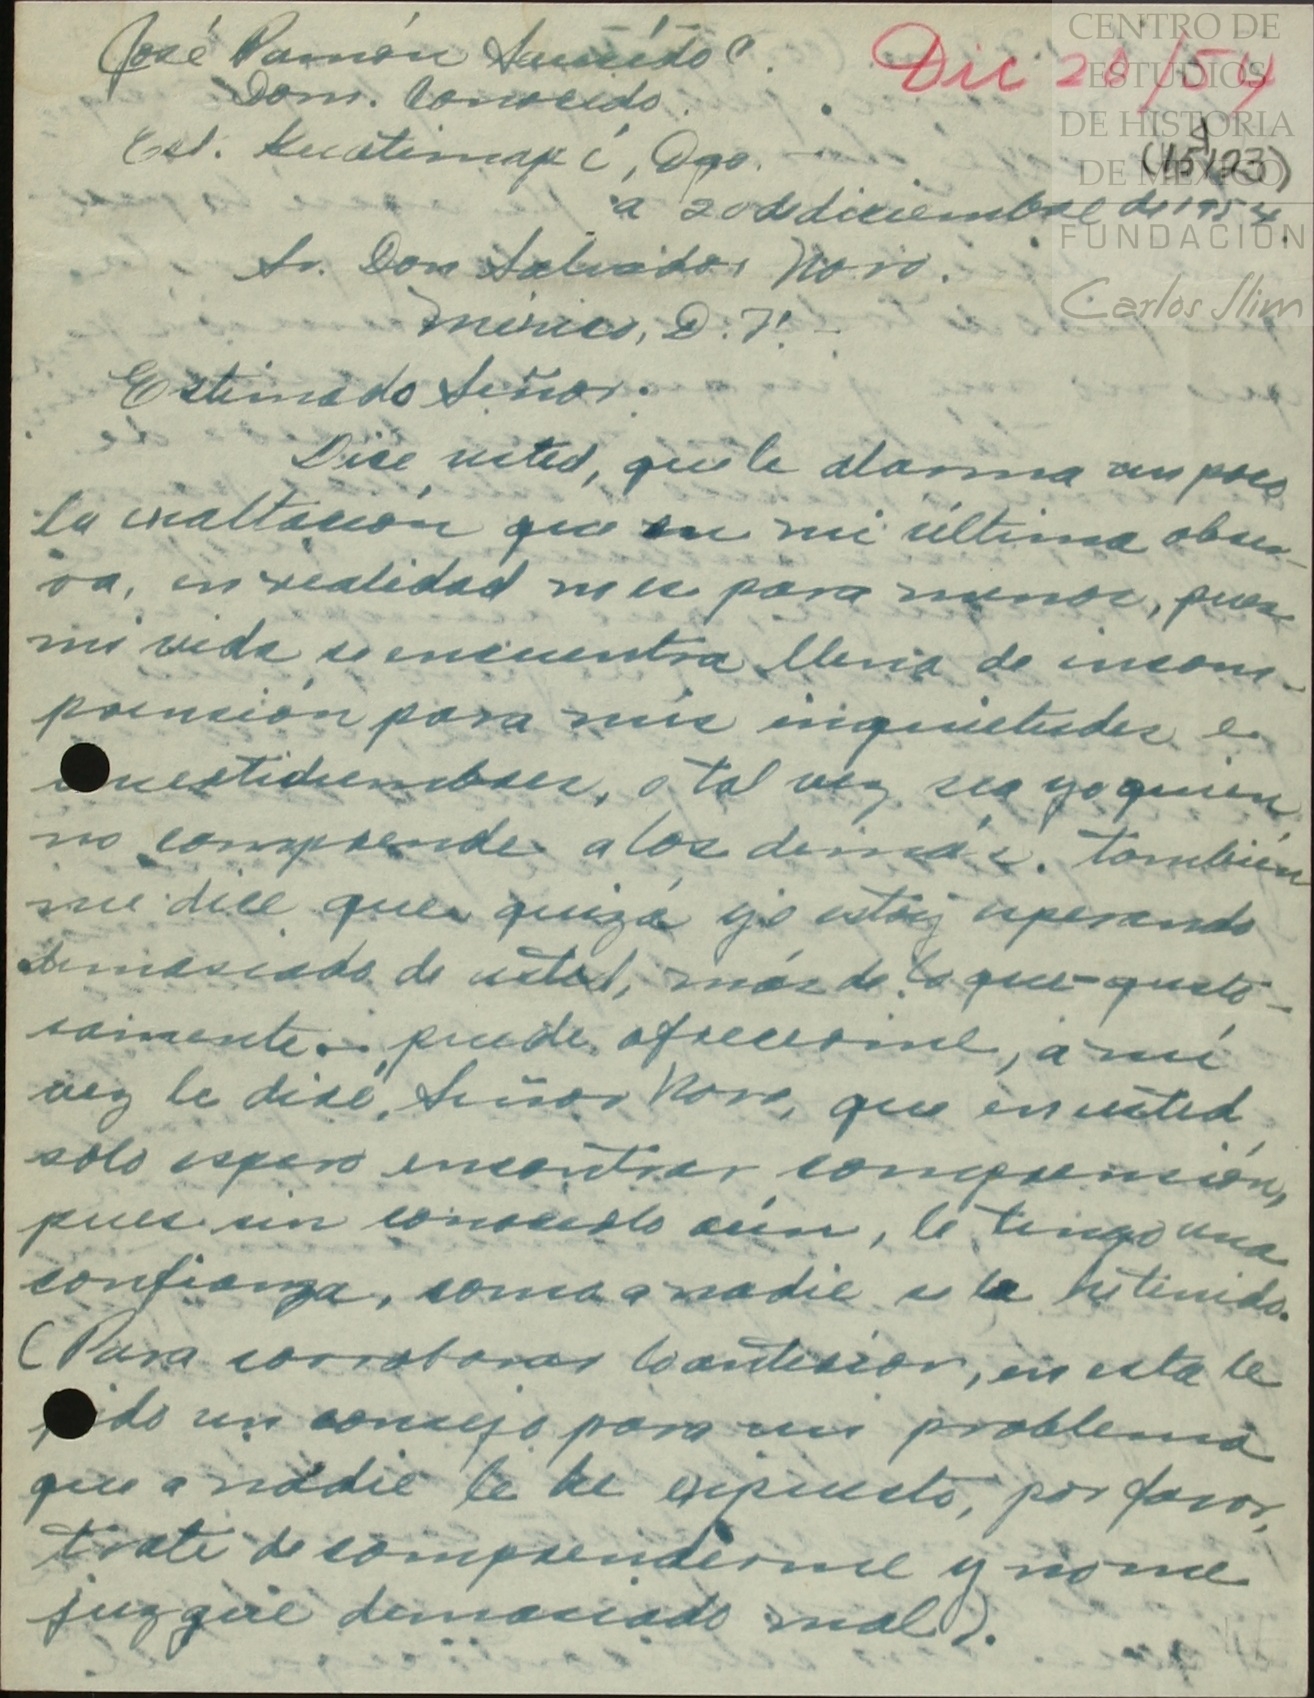 José Ramón Saucedo C.
Dom. Conocido.
Est. Kuatimapé, Dgo. -
a 20 de diciembre de 1954.
Dic 26/54
(15123)
CENTRO DE
ESTUDIOS
DE HISTORIA
DE MÉXICO
FUNDACIÓN
Carlos Slim
Sr. Don Salvador Novo.
México, D. F. -
Estimado Señor:
Dice usted, que le alarma un poco
la exaltación que en mi última obser-
va, en realidad no es para menos, pues
mi vida se encuentra llena de incom-
prensión para mis inquietudes e
incertidumbres, o tal vez sea yo quien
no comprende a los demás. También
me dice que quizá yo estoy esperando
demasiado de usted, más de lo que-gusto-
samente-puede ofrecerme, a mi
vez le diré, Señor Novo, que en usted
solo espero encontrar comprensión,
pues sin conocerlo aún, le tengo una
confianza, como a nadie se la he tenido.
(Para corroborar lo anterior, en esta le
pido un consejo para un problema
que a nadie le he expuesto, por favor,
trate de comprenderme y no me
juzgue demasiado mal).